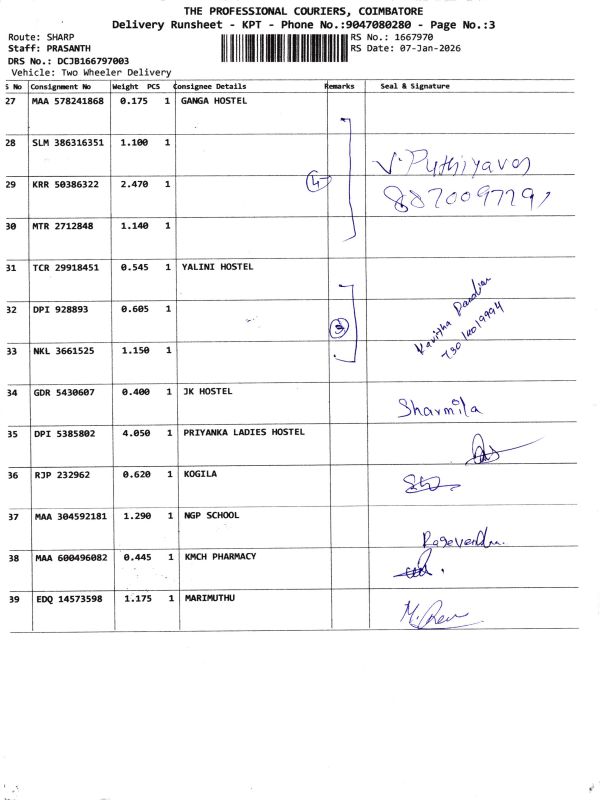 THE PROFESSIONAL COURIERS, COIMBATORE
Delivery Runsheet - KPT - Phone No.:9047080280 - Page No.:3
Route: SHARP
RS No.: 1667970
Staff: PRASANTH
RS Date: 07-Jan-2026
DRS No.: DCJB166797003
Vehicle: Two Wheeler Delivery
S No Consignment No Weight PCS Consignee Details Remarks Seal & Signature
27 MAA 578241868 0.175 1 GANGA HOSTEL
28 SLM 386316351 1.100 1
V. Puthiyavan
29 KRR 50386322 2.470 1 4
30 MTR 2712848 1.140 1
31 TCR 29918451 0.545 1 YALINI HOSTEL
32 DPI 928893 0.605 1 3
Kavitha Pandian
33 NKL 3661525 1.150 1
34 GDR 5430607 0.400 1 JK HOSTEL
Sharmila
35 DPI 5385802 4.050 1 PRIYANKA LADIES HOSTEL
36 RJP 232962 0.620 1 KOGILA
37 MAA 304592181 1.290 1 NGP SCHOOL
38 MAA 600496082 0.445 1 KMCH PHARMACY
39 EDQ 14573598 1.175 1 MARIMUTHU